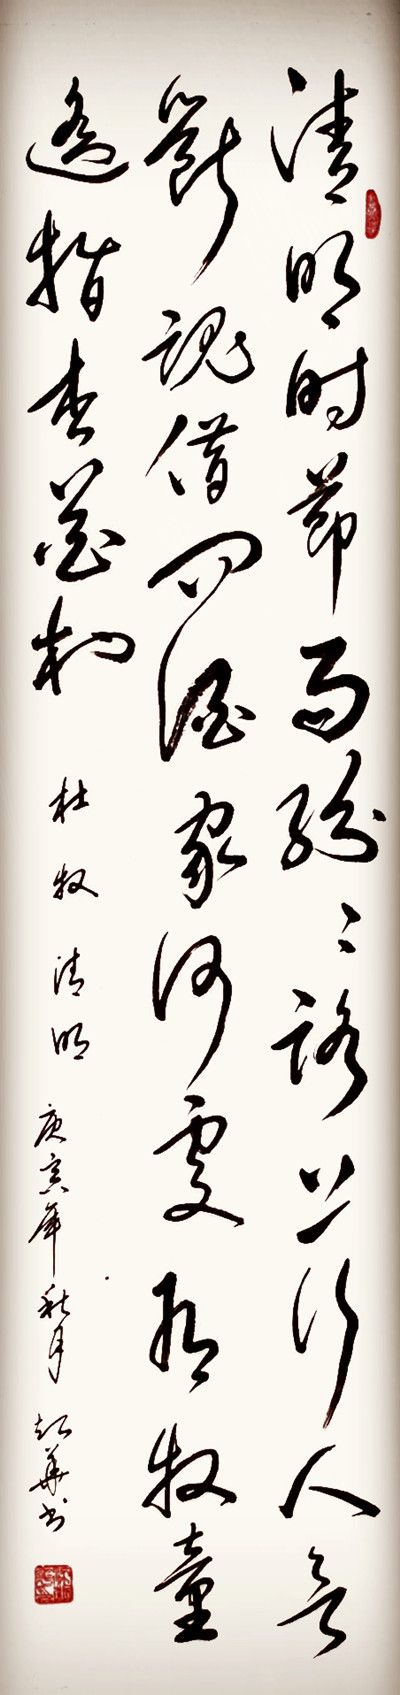 清明时節雨纷〻路上行人欲
断魂借问酒家何處有牧童
遥指杏花村
杜牧 清明 庚寅年秋月 華书